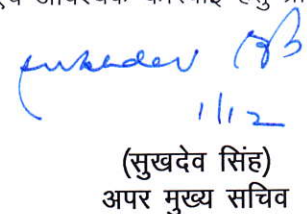 एवं आवश्यक कार्रवाई हेतु
sukhdev
1/12
(सुखदेव सिंह)
अपर मुख्य सचिव